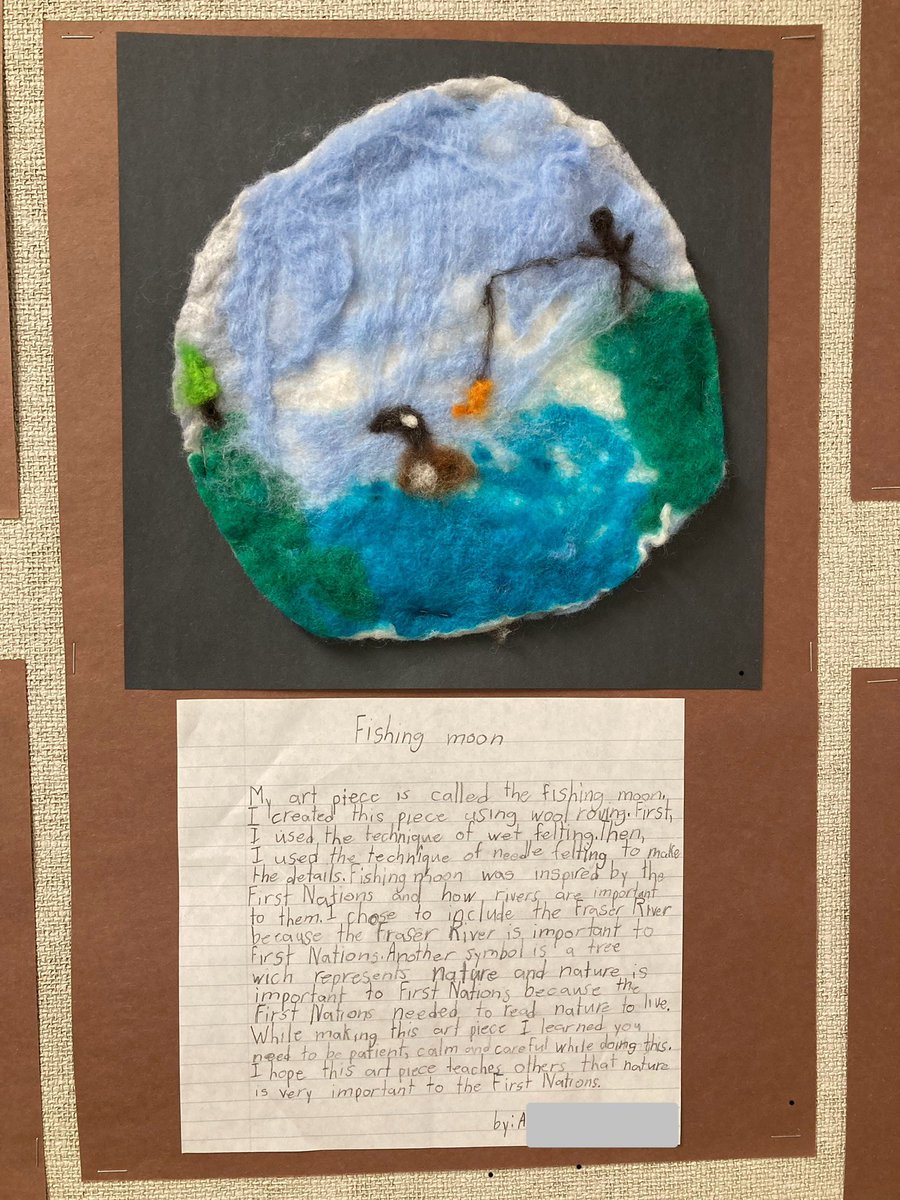 Fishing moon
My art piece is called the fishing moon.
I created this piece using wool roving. First,
I used the technique of wet felting. Then,
I used the technique of needle felting to make
the details. Fishing moon was inspired by the
First Nations and how rivers are important
to them. I chose to include the Fraser River
because the Fraser River is important to
First Nations. Another symbol is a tree
wich represents nature and nature is
important to First Nations because the
First Nations needed to read nature to live.
While making this art piece I learned you
need to be patient, calm and careful while doing this.
I hope this art piece teaches others that nature
is very important to the First Nations.
by: A